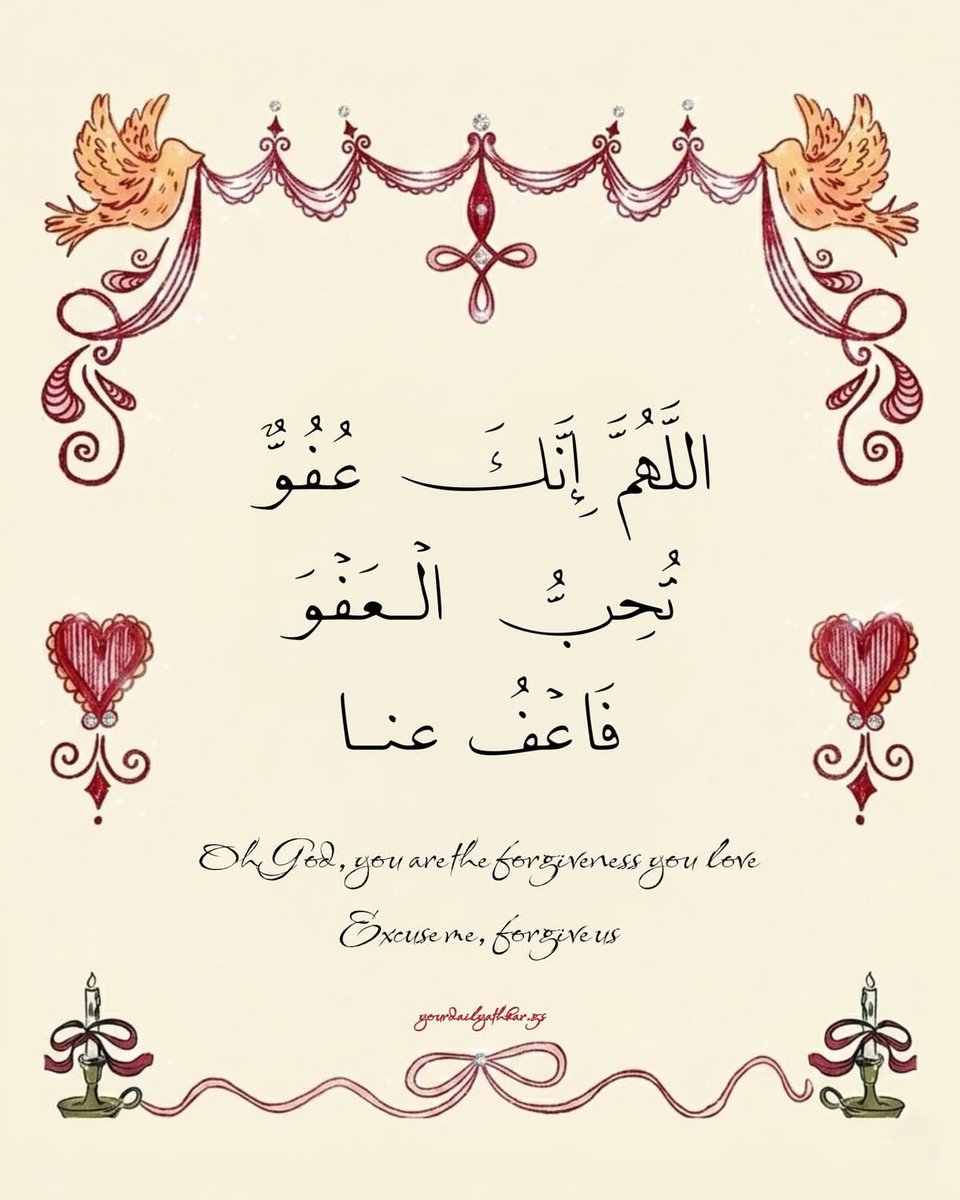 اللَّهُمَّ إِنَّكَ عُفُوٌّ
تُحِبُّ الْعَفْوَ
فَاعْفُ عنا
Oh God, you are the forgiveness you love
Excuse me, forgive us
yourdailyathkar.gs